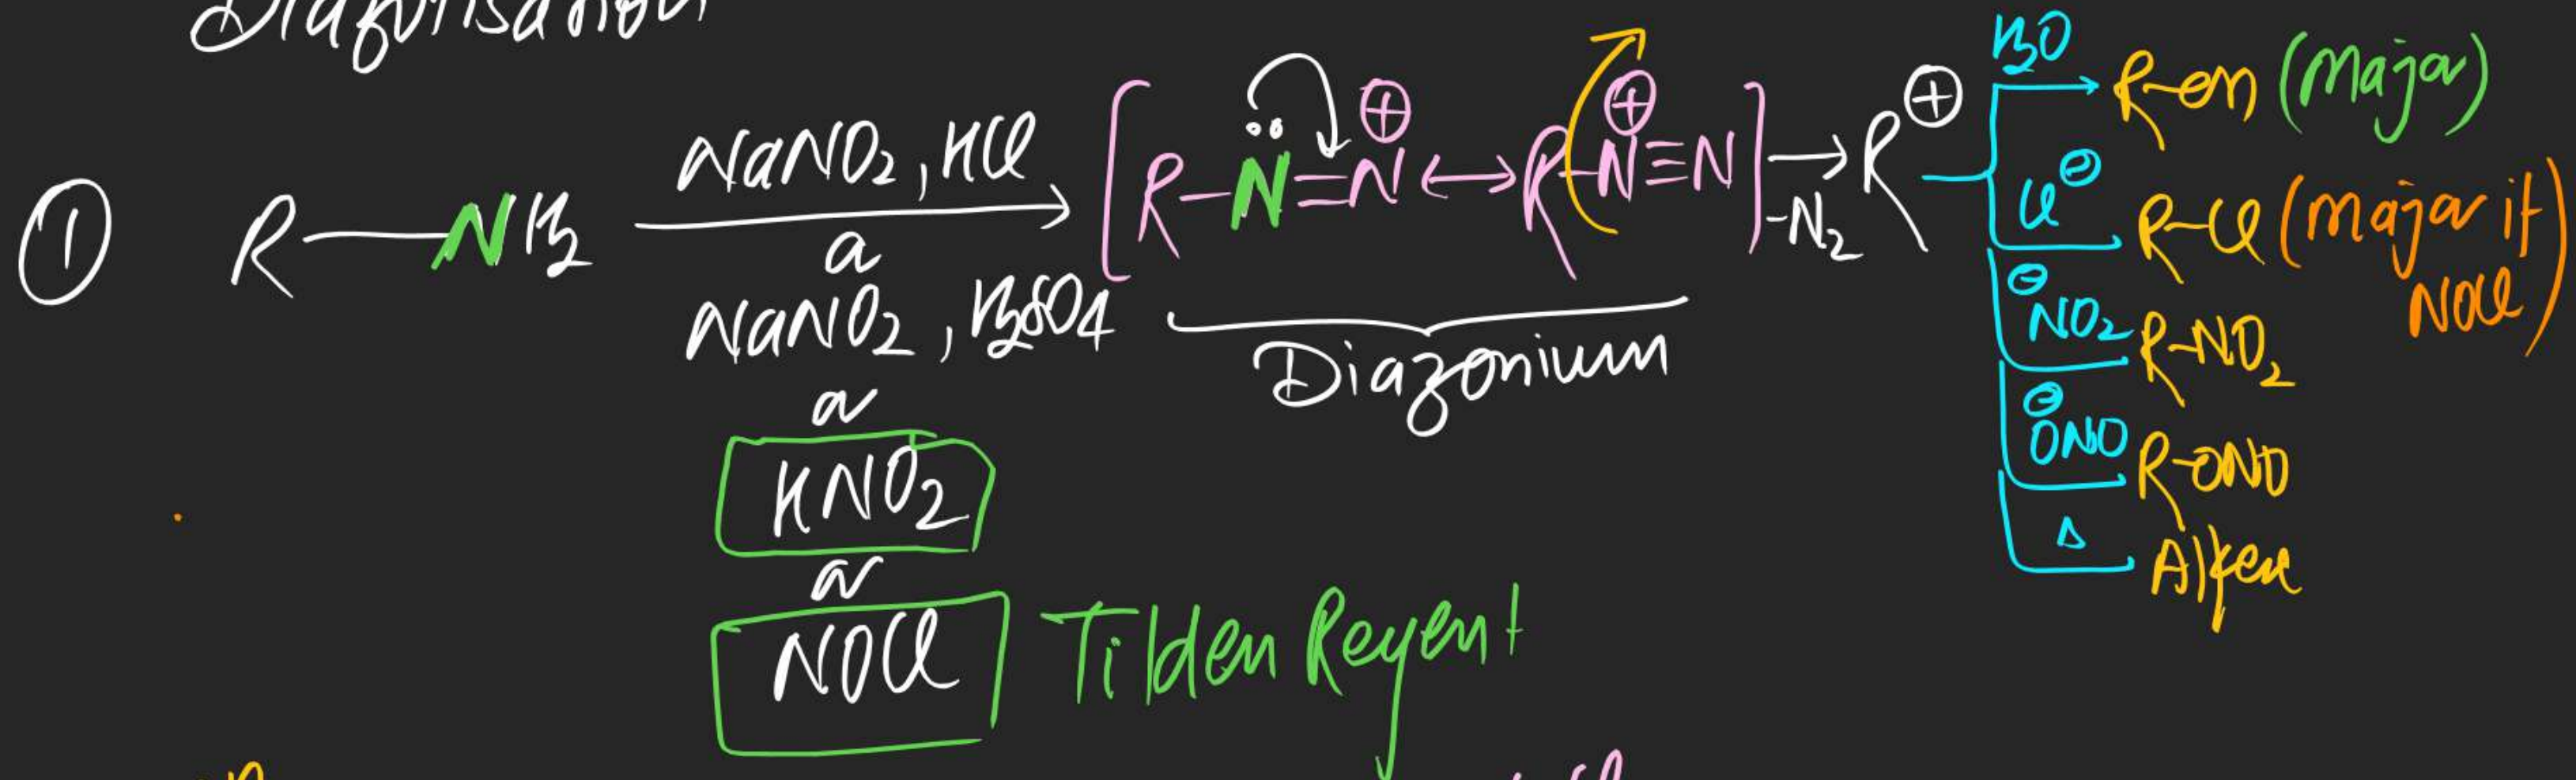 Diazotisation
① R—NH2 NaNO2, HCl [R-N̈=N⊕ ↔ R-N⊕≡N] → -N2 R⊕
or
NaNO2, H2SO4
or
HNO2
or
NOCl Tilden Reagent
Diazonium
H2O R-OH (Major)
Cl⊖ R-Cl (Major if NOCl)
⊖NO2 R-NO2
⊖ONO R-ONO
Δ Alkene